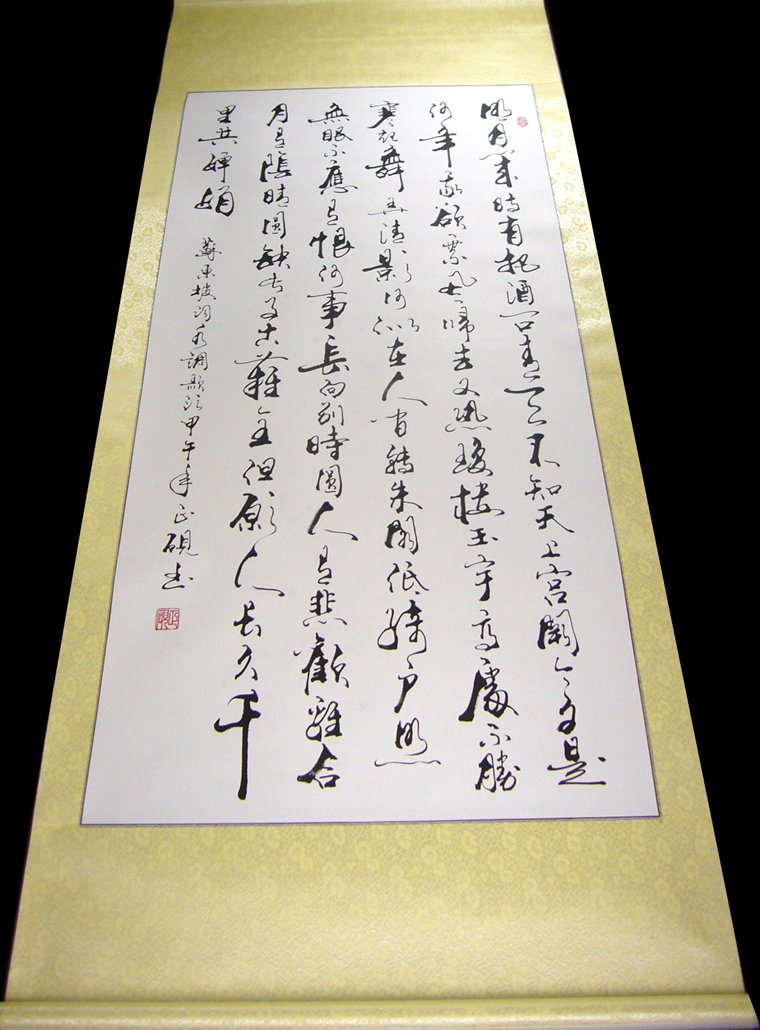 明月幾時有把酒問青天不知天上宮闕今夕是
何年我欲乘風歸去又恐瓊樓玉宇高處不勝
寒起舞弄清影何似在人間轉朱閣低綺戶照
無眠不應有恨何事長向別時圓人有悲歡離合
月有陰晴圓缺此事古難全但願人長久千
里共嬋娟
蘇東坡詞水調歌頭甲午年正硯書